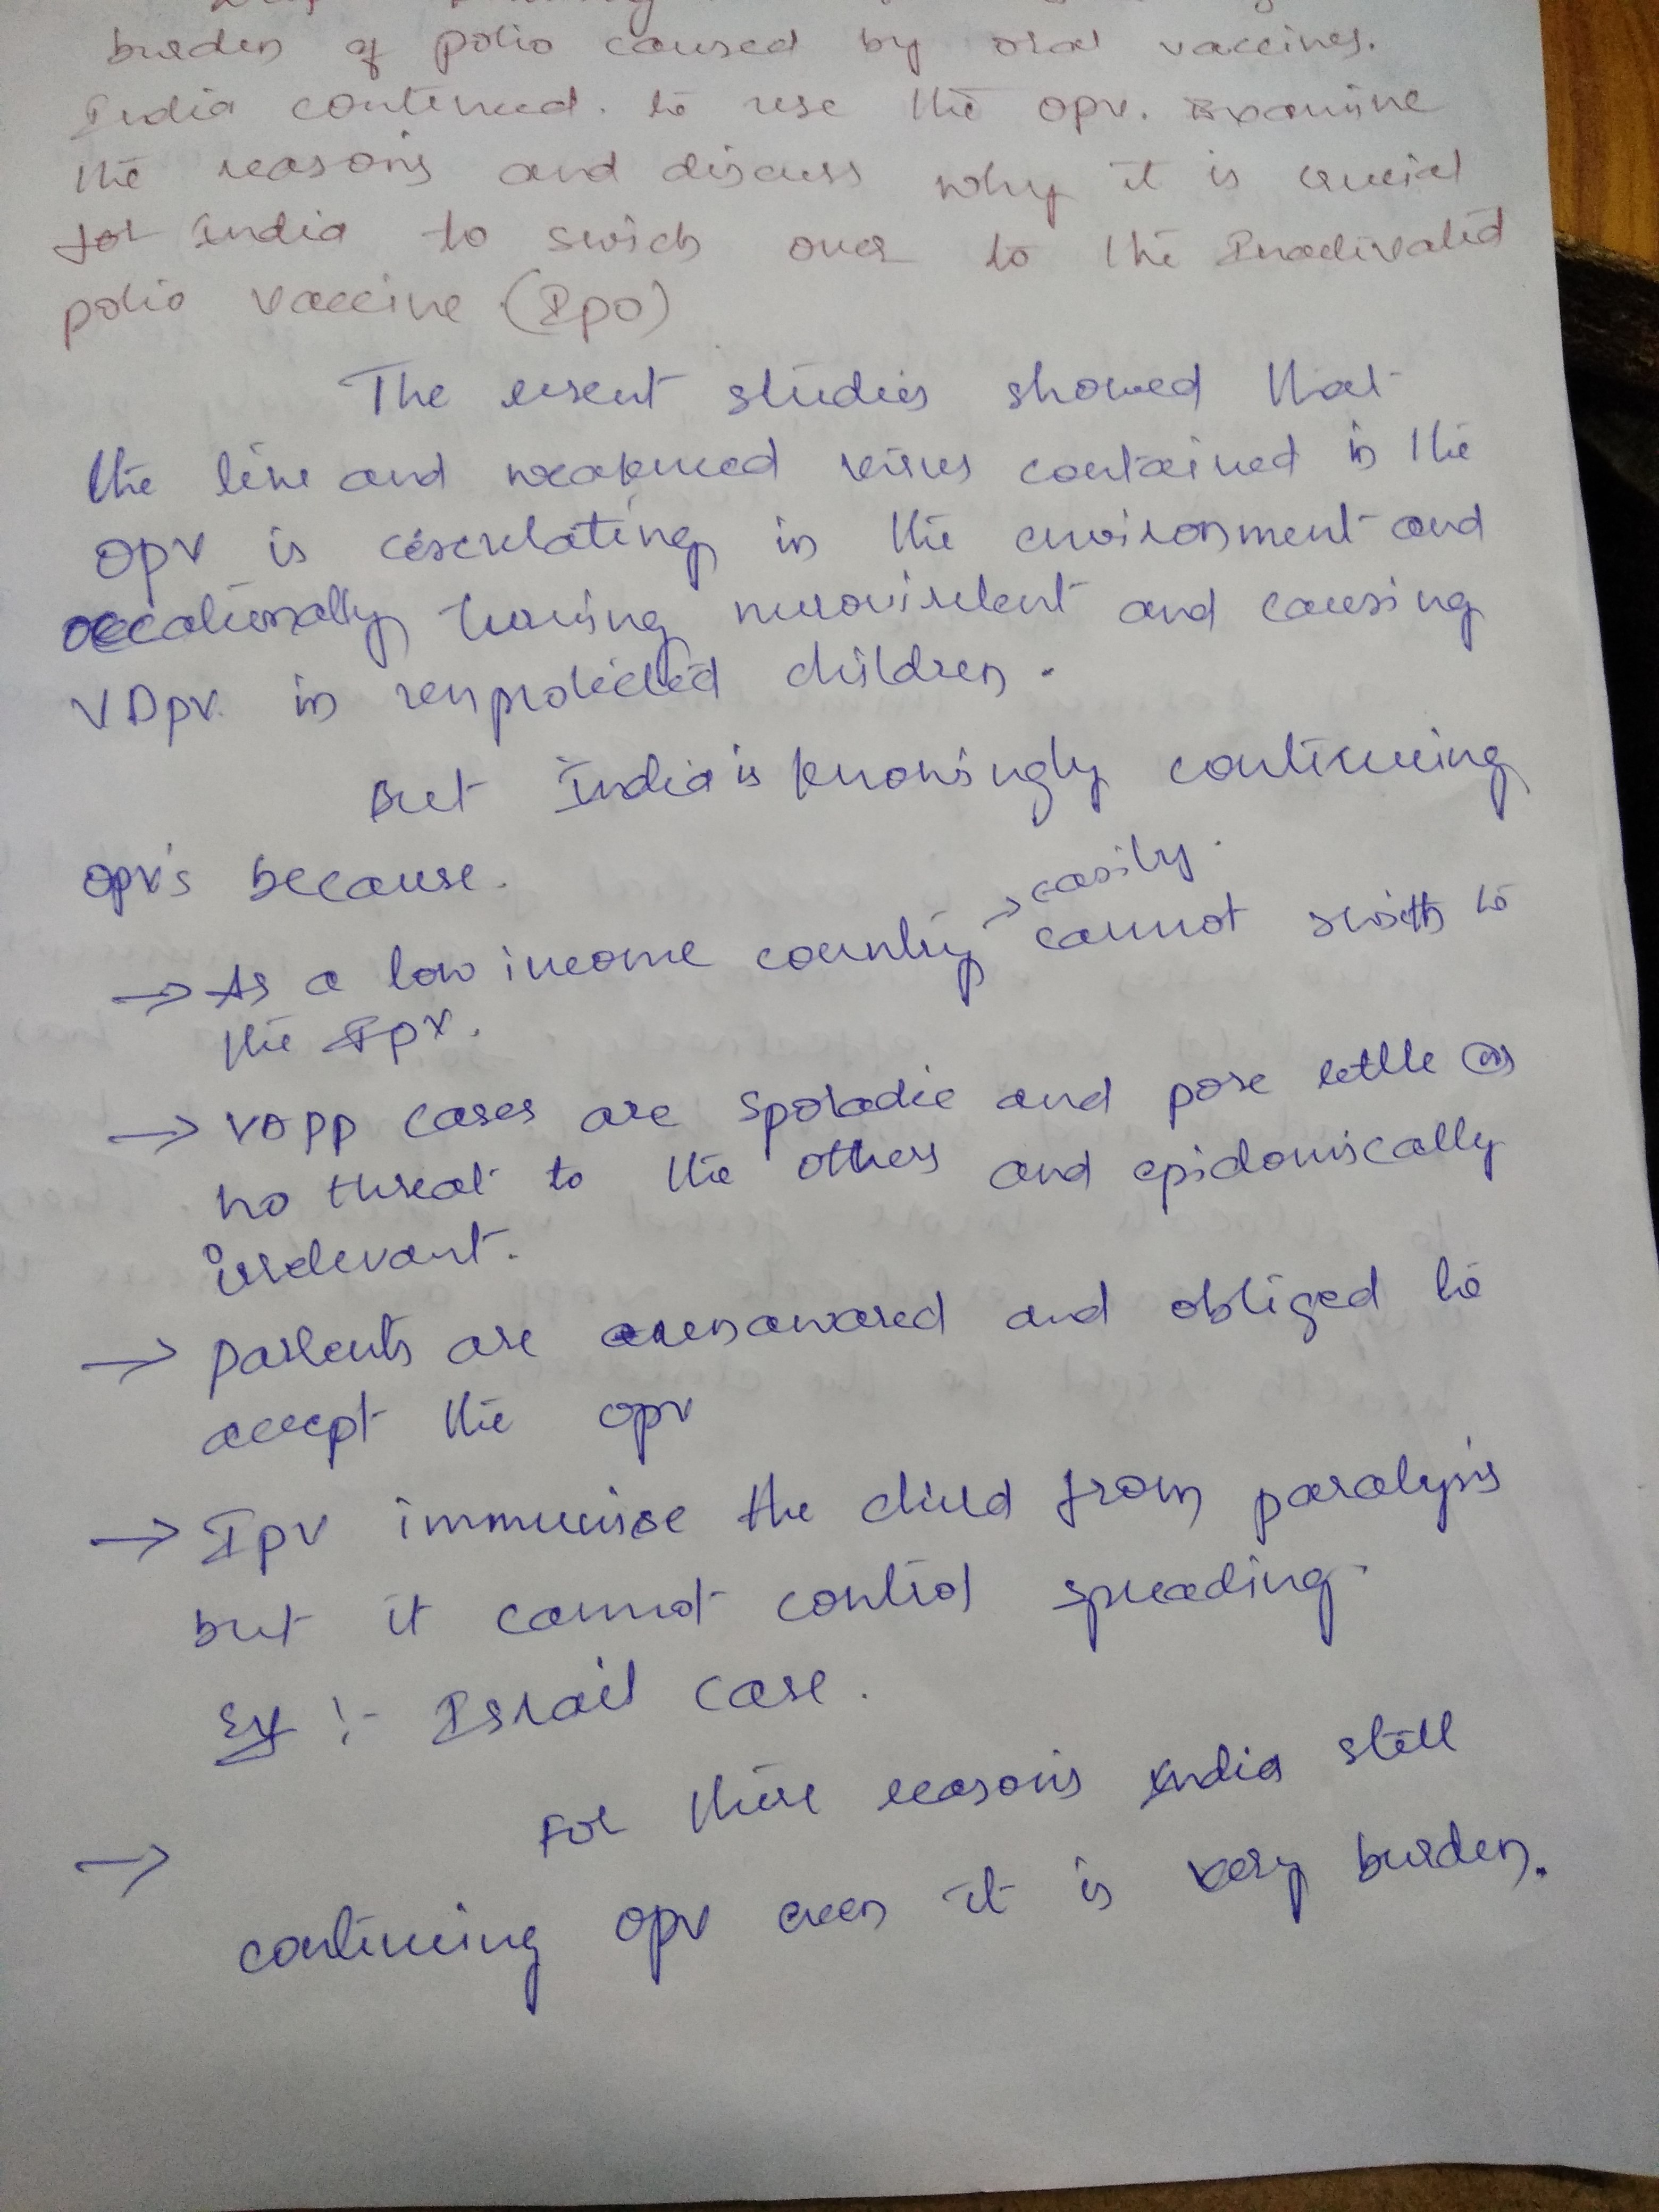 burden of polio caused by oral vaccines.
India continued. to use the opv. Examine
the reasons and discuss why it is crucial
for India to swich over to the Inactivated
polio vaccine (Ipo)
The resent studies showed that
the live and weakened virus contained in the
opv is cerculating in the environment and
occationally turning nurovirulent and causing
VDpv. in unprotected children.
But India is knowingly continuing
opv's because.
→ easily.
→ As a low income country cannot swith to
the Ipv.
→ VAPP cases are sporadic and pose little or
no threat to the others and epidomiscally
irrelevant.
→ parents are unawared and obliged to
accept the opv
→ Ipv immunise the child from paralysis
but it cannot control spreading.
Ex :- Israil case.
For these reasons India still
→
continuing opv even it is very burden.